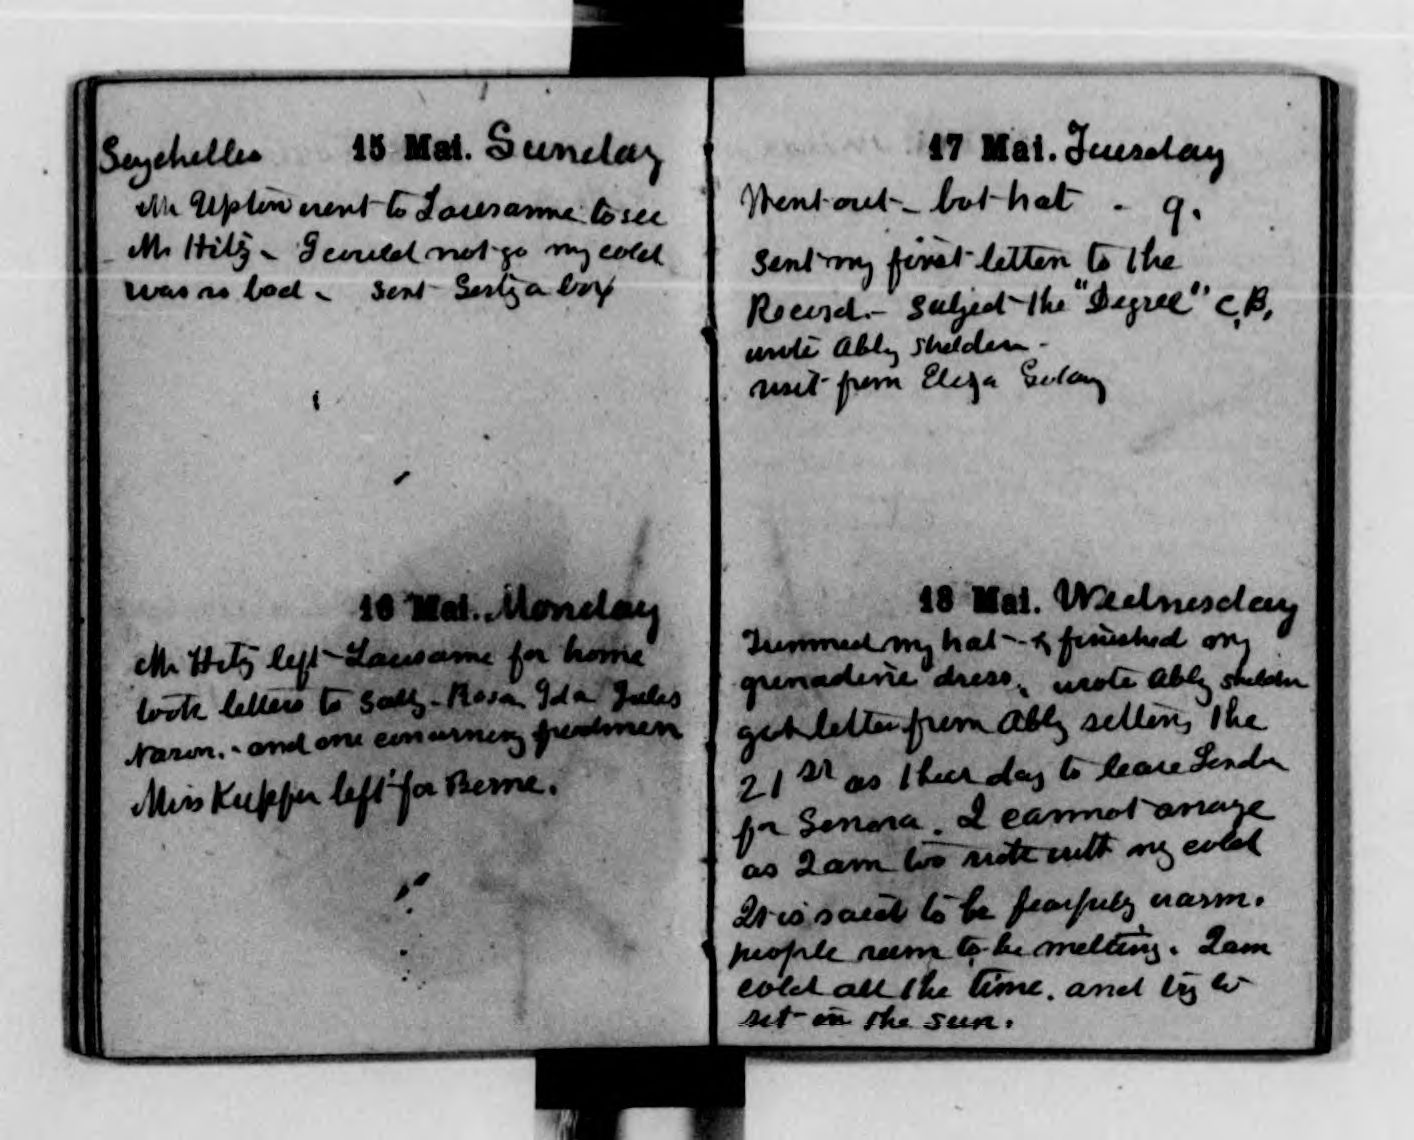 Seychelles 15 Mai. Sunday
Mr Upton went to Lausanne to see
Mr Hitz - I could not go my cold
was so bad - sent a box
16 Mai. Monday
Mr Hitz left Lausanne for home
took letters to Sally - Rosa, Ida Jules
and one concerning freedmen
Miss Kupfer left for Berne.
17 Mai. Tuesday
Went out - bot hat - 9.
Sent my first letter to the
Record. - subject the "Degree" C.B.
wrote Abby Sheldon -
visit from Eliza Golay
18 Mai. Wednesday
Trimmed my hat - & finished my
grenadine dress, wrote Abby Sheldon
got letter from Abby setting the
21st as their day to leave London
for Genova. I cannot arrange
as I am too with my cold
It is said to be fearfully warm.
people seem to be melting. I am
cold all the time. and try to
sit in the sun.